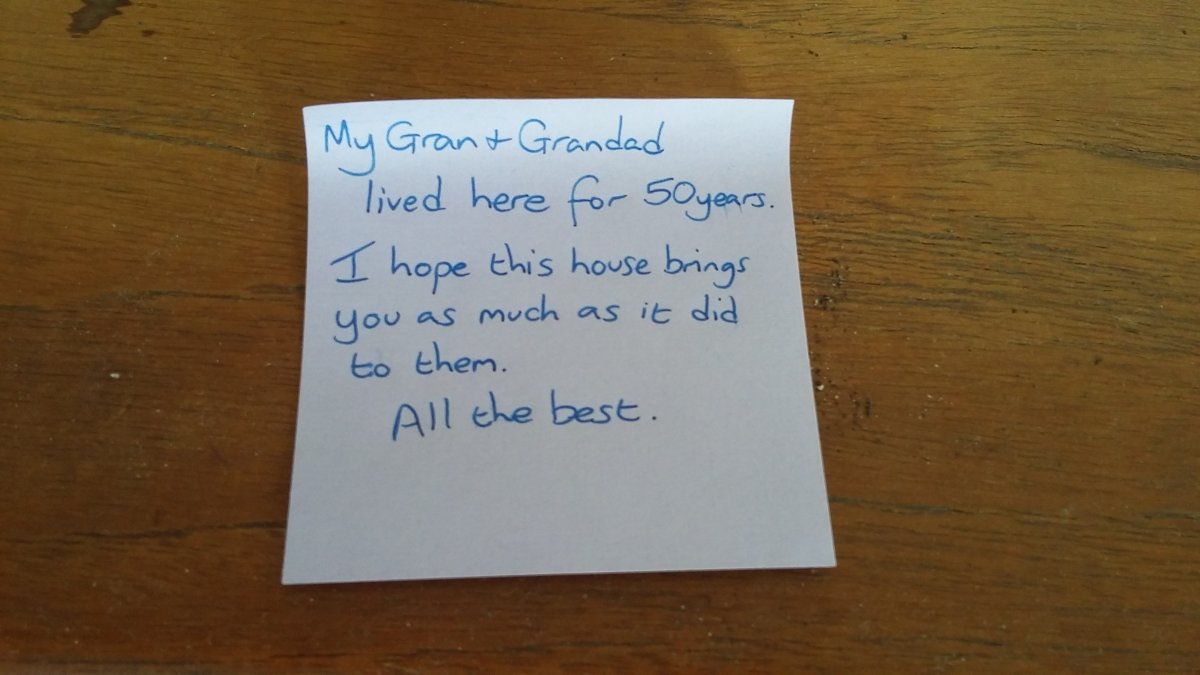 My Gran + Grandad
lived here for 50years.
I hope this house brings
you as much as it did
to them.
All the best.